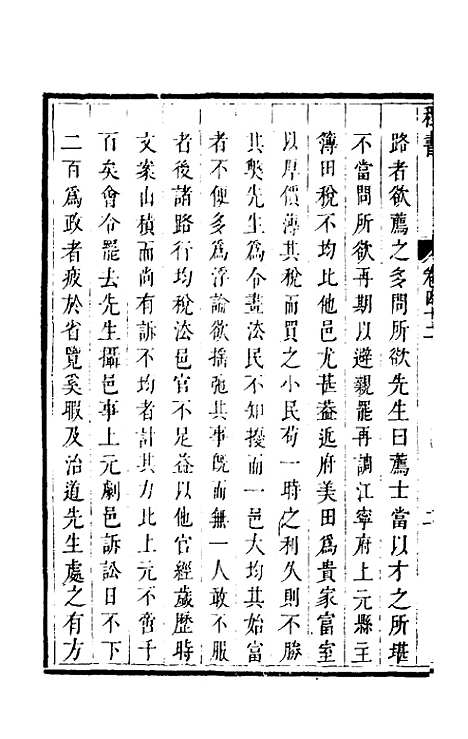 卷四十二
二
路者欲薦之多問所欲先生曰薦士當以才之所堪
不當問所欲再期以避親罷再調江寧府上元縣主
簿田稅不均比他邑尤甚蓋近府美田爲貴家富室
以厚價薄其稅而買之小民苟一時之利久則不勝
其獘先生爲令畫法民不知擾而一邑大均其始富
者不便多爲浮論欲揺弛其事旣而無一人敢不服
者後諸路行均稅法邑官不足益以他官經歲歷時
文案山積而尚有訴不均者計其力比上元不啻千
百矣會令罷去先生攝邑事上元劇邑訴訟日不下
二百爲政者疲於省覽奚暇及治道先生處之有方